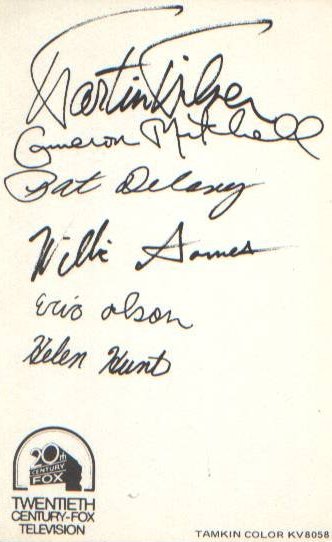 Martin Milner
Cameron Mitchell
Pat Delaney
Willie Aames
Eric Olson
Helen Hunt
20th
CENTURY
FOX
TWENTIETH
CENTURY-FOX
TELEVISION
TAMKIN COLOR KV8058